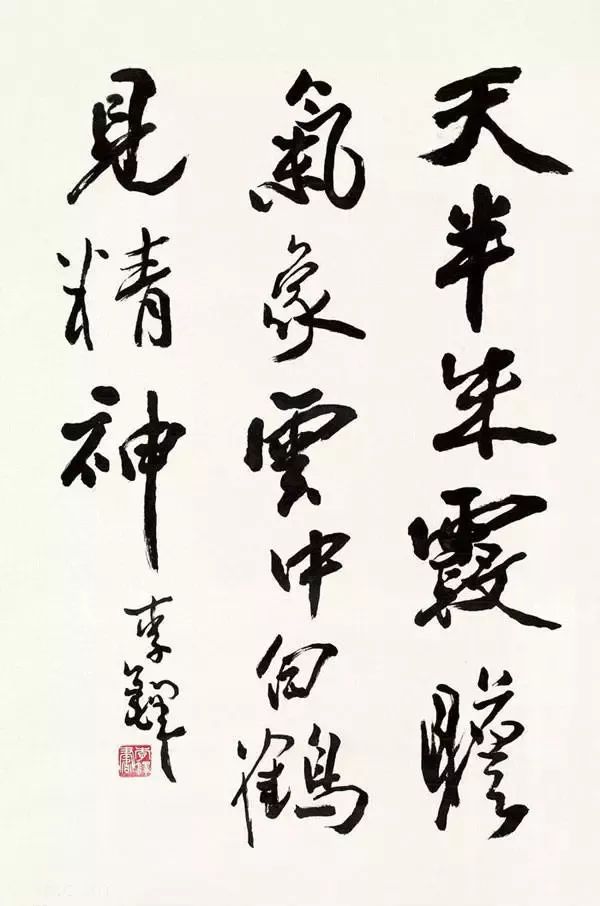 天半朱霞瞻
氣象雲中白鶴
見精神
李鐸